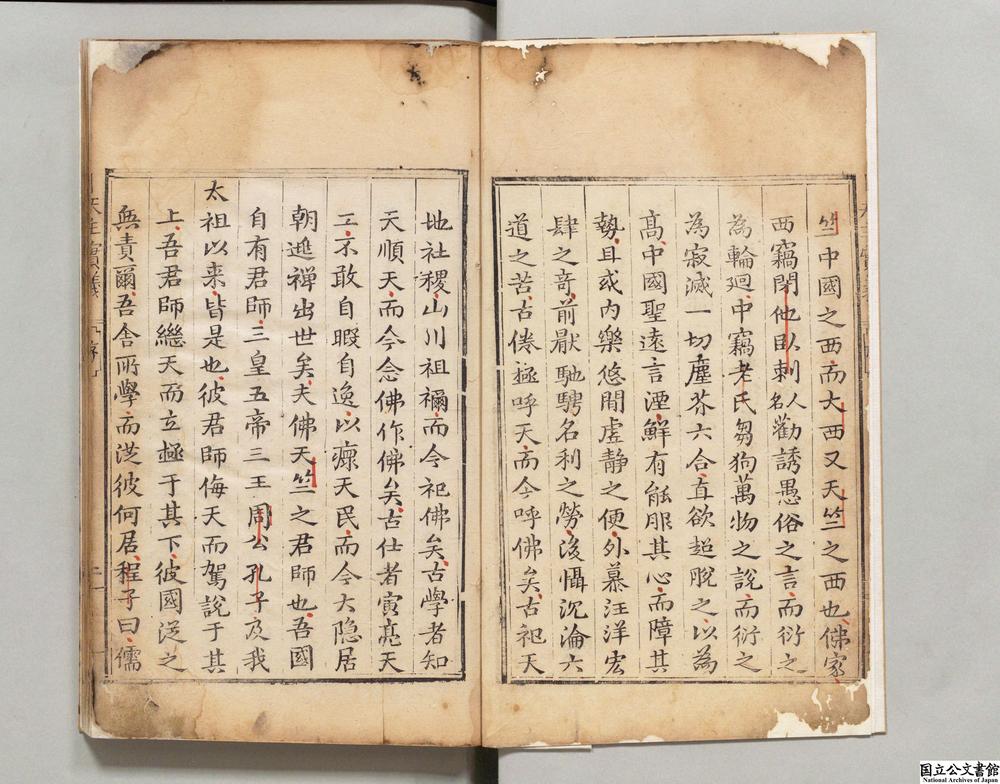 竺中國之西而大西又天竺之西也佛家
西竊閉他臥剌人名勸誘愚俗之言而衍之
為輪迴中竊老氏芻狗萬物之說而衍之
為寂滅一切塵芥六合直欲超脫之以為
高中國聖遠言湮鮮有能服其心而障其
勢且或內樂悠閒虛靜之便外慕汪洋宏
肆之奇前厭馳騁名利之勞後懾沉淪六
道之苦古倦極呼天而今呼佛矣古祀天
地社稷山川祖禰而今祀佛矣古學者知
天順天而今念佛作佛矣古仕者寅亮天
工不敢自暇自逸以瘝天民而今大隱居
朝逃禪出世矣夫佛天竺之君師也吾國
自有君師三皇五帝三王周公孔子及我
太祖以来皆是也彼君師侮天而駕說于其
上吾君師繼天而立極于其下彼國從之
無責爾吾舍所學而從彼何居程子曰儒
天主實義
国立公文書館
National Archives of Japan